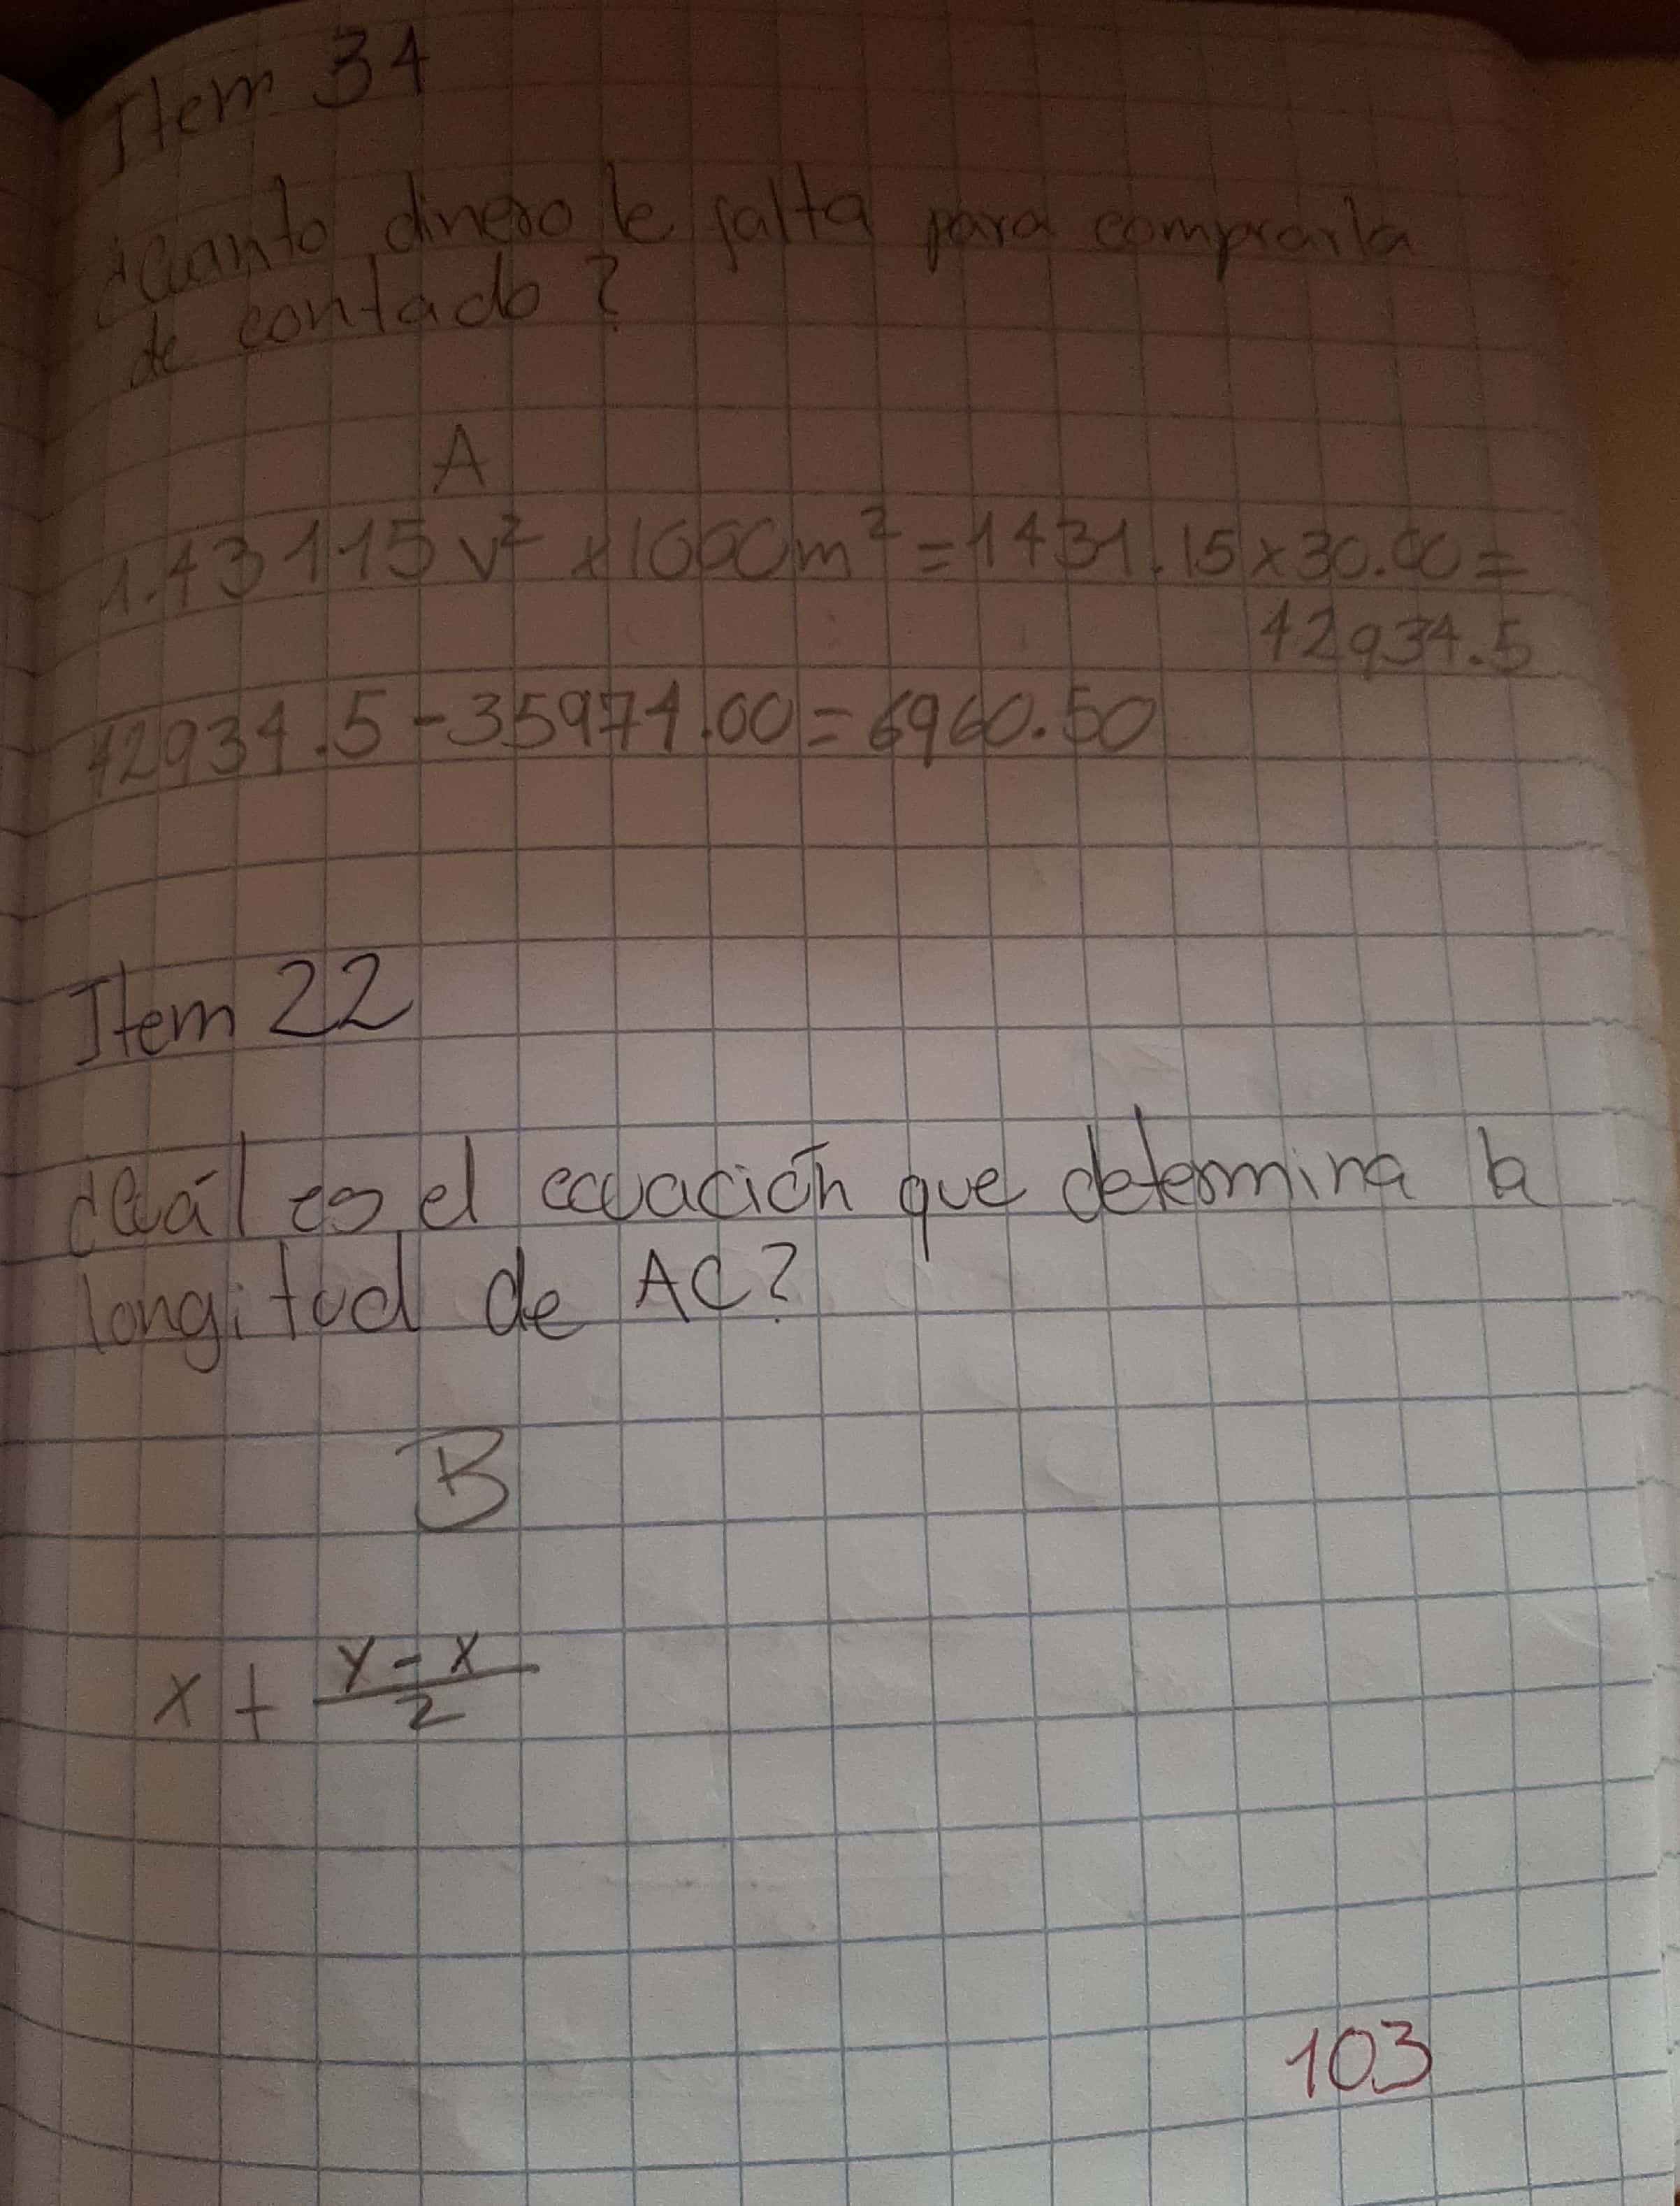 Item 34
¿Cuanto dinero le falta para comprarla
de contado?
A
1.43115 v² x 1000m² = 1431.15 x 30.00 =
42934.5
42934.5 - 35974.00 = 6960.50
Item 22
¿Cuál es el ecuación que determina la
longitud de AC?
B
x + y - x
2
103